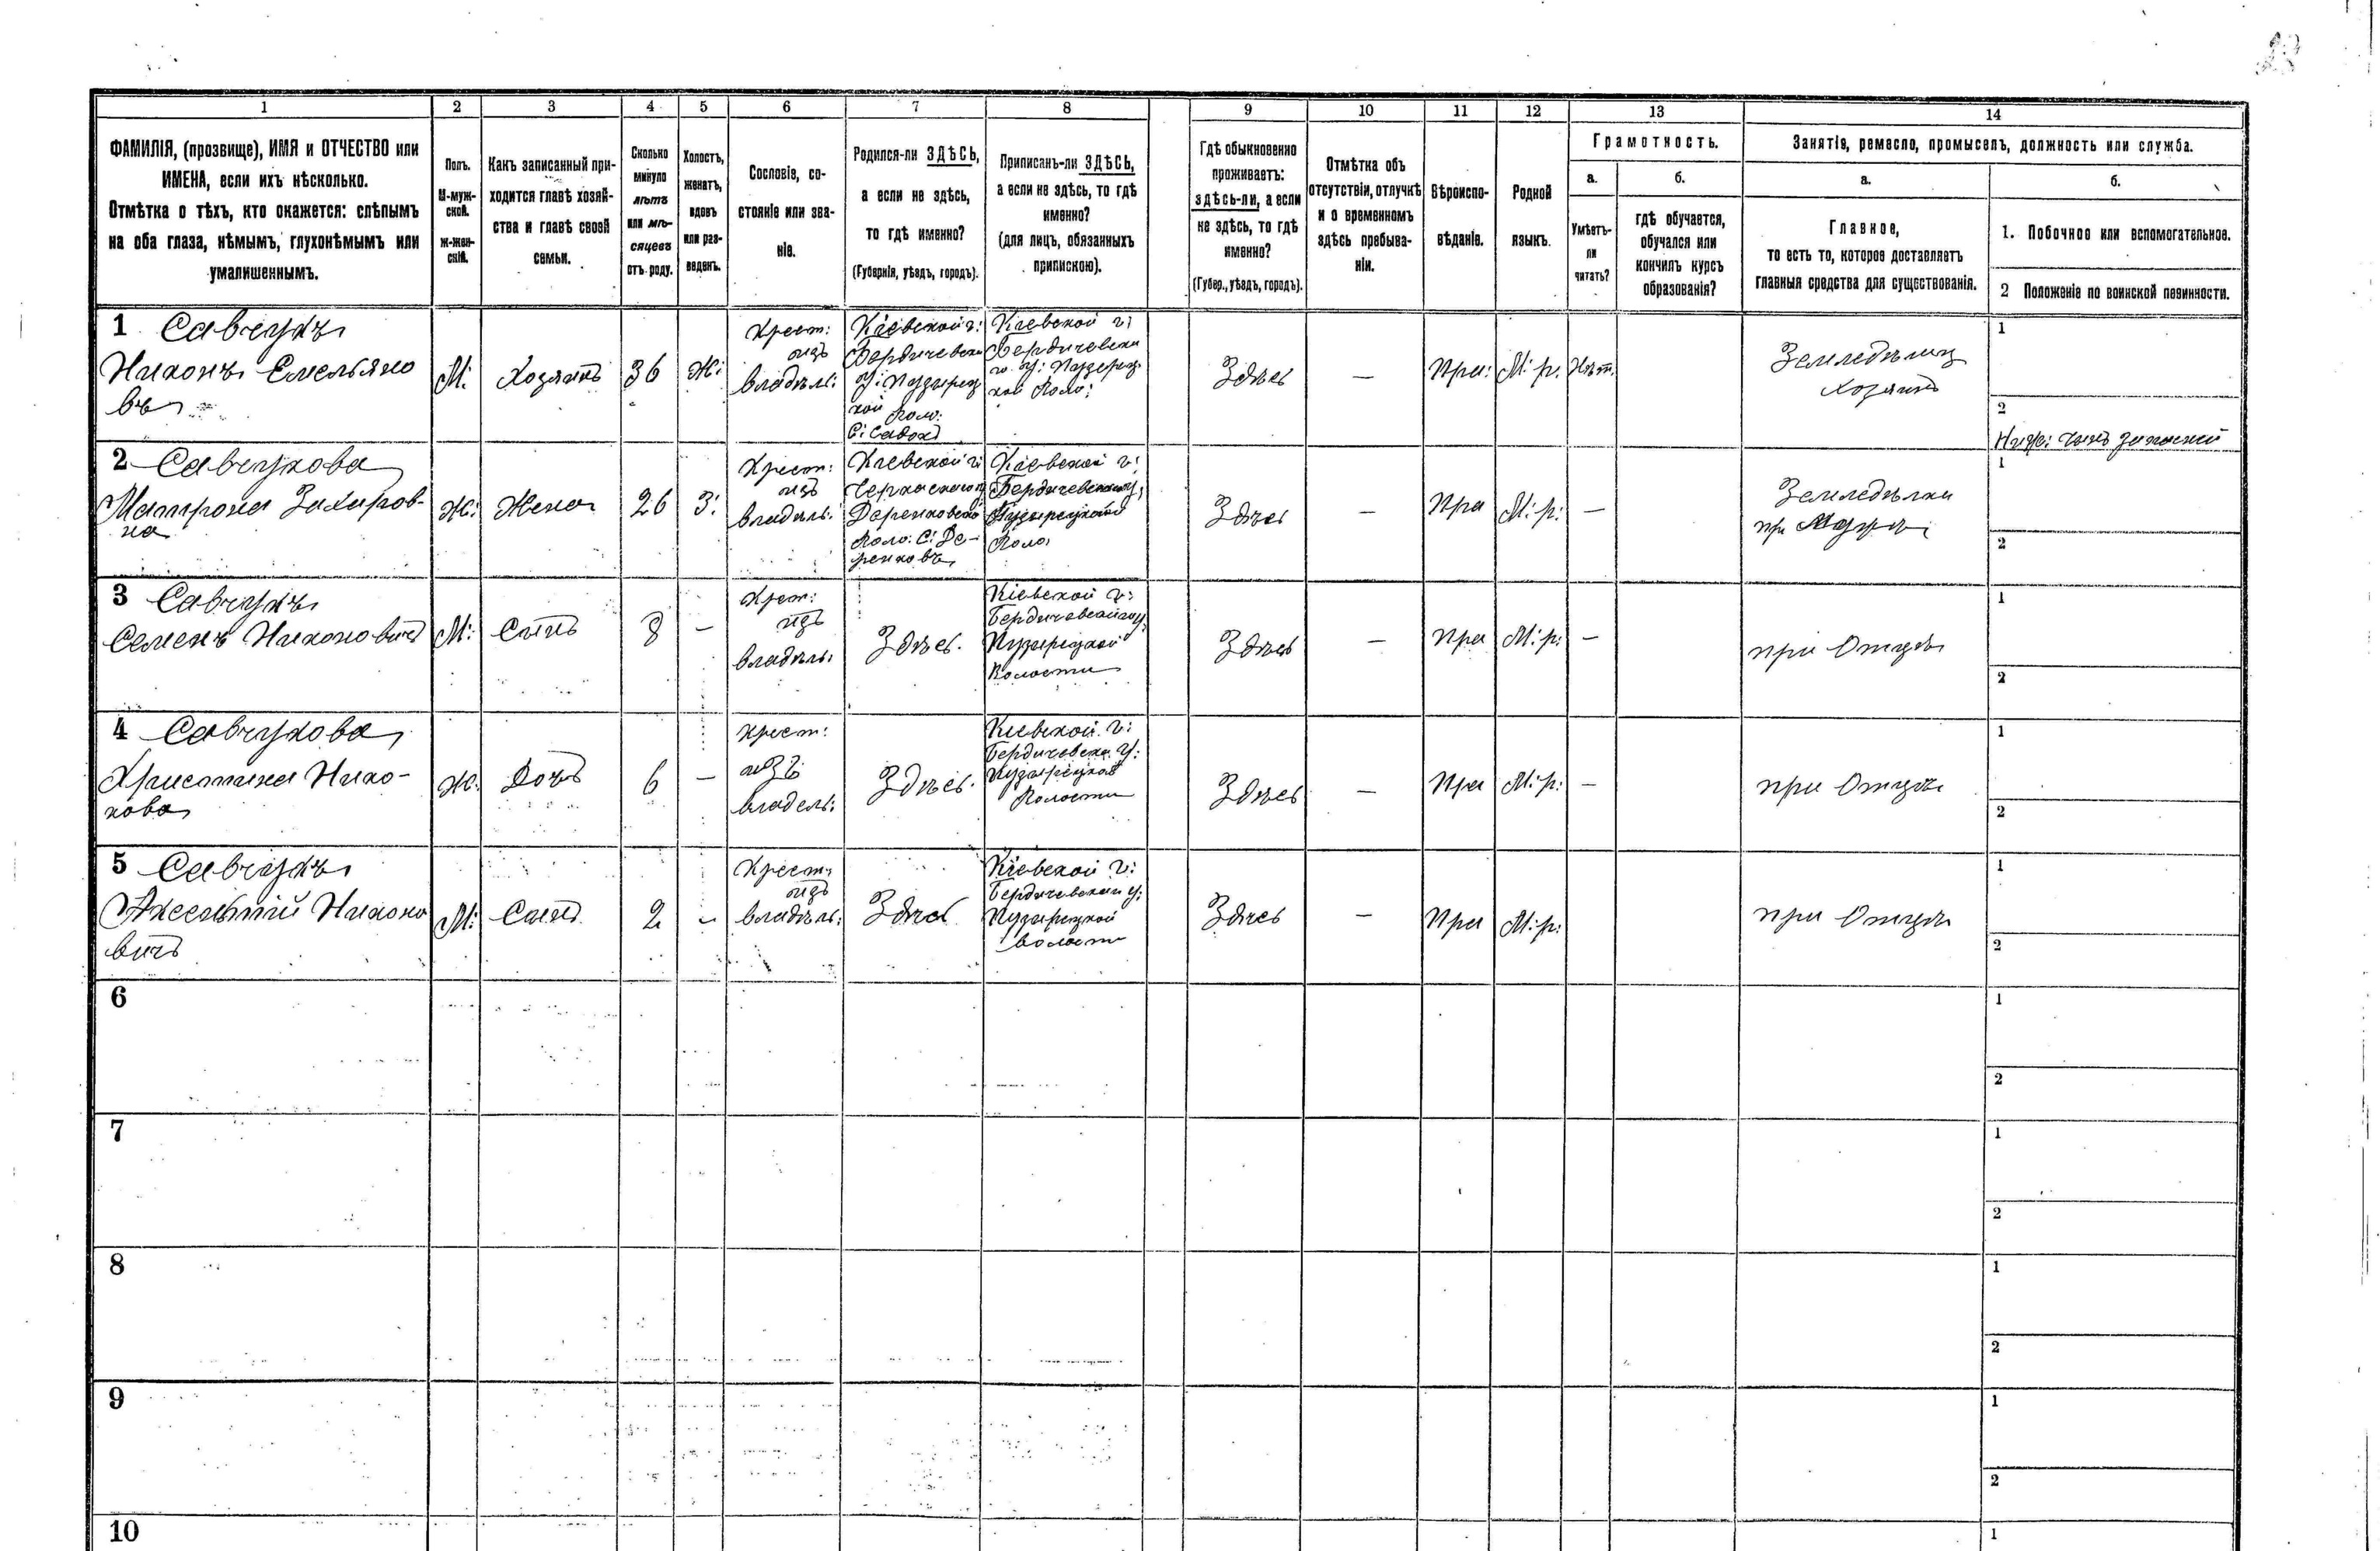 23
1 2 3 4 5 6 7 8 9 10 11 12 13 14
ФАМИЛІЯ, (прозвище), ИМЯ и ОТЧЕСТВО или
ИМЕНА, если ихъ нѣсколько.
Отмѣтка о тѣхъ, кто окажется: слѣпымъ
на оба глаза, нѣмымъ, глухонѣмымъ или
умалишеннымъ.
Полъ.
М-муж-
ской.
ж-жен-
скій.
Какъ записанный при-
ходится главѣ хозяй-
ства и главѣ своей
семьи.
Сколько
минуло
лѣтъ
или мѣ-
сяцевъ
отъ роду.
Холостъ,
женатъ,
вдовъ
или раз-
веденъ.
Сословіе, со-
стояніе или зва-
ніе.
Родился-ли ЗДѢСЬ,
а если не здѣсь,
то гдѣ именно?
(Губернія, уѣздъ, городъ).
Приписанъ-ли ЗДѢСЬ,
а если не здѣсь, то гдѣ
именно?
(для лицъ, обязанныхъ
припискою).
Гдѣ обыкновенно
проживаетъ:
здѣсь-ли, а если
не здѣсь, то гдѣ
именно?
(Губер., уѣздъ, городъ).
Отмѣтка объ
отсутствіи, отлучкѣ
и о временномъ
здѣсь пребыва-
ніи.
Вѣроиспо-
вѣданіе.
Родной
языкъ.
Грамотность.
а.
Умѣетъ-
ли
читать?
б.
гдѣ обучается,
обучался или
кончилъ курсъ
образованія?
Занятіе, ремесло, промыселъ, должность или служба.
а.
Главное,
то есть то, которое доставляетъ
главныя средства для существованія.
б.
1. Побочное или вспомогательное.
2 Положеніе по воинской повинности.
1 Савчукъ
Никонъ Емельяно
въ
М:
Хозяинъ
36
Ж:
Крест:
изъ
владѣль:
Кіевской г:
Бердичевски
У: Пузырец
кой Воло:
С: Садокъ
Кіевской г:
Бердичевски
го У: Пузырец
кой Воло:
Здѣсь
—
Пра:
М: р.
Нѣт.
Земледѣлец
хозяинъ
1
2
Ниж: чинъ запасный
2 Савчукова
Матрона Захаров-
на
Ж:
Жена
26
З:
Крест:
изъ
владѣль:
Кіевской г:
Черкаскаго у
Деренковско
Воло: С: Де-
ренковъ
Кіевской г:
Бердичевскаго у,
Пузырецкой
Воло:
Здѣсь
—
Пра
М: р:
—
Земледѣлка
при Мужѣ
1
2
3 Савчукъ
Семенъ Никоновичъ
М:
Сынъ
8
—
Крест:
изъ
владѣль:
Здѣсь.
Кіевской г:
Бердичевскаго у,
Пузырецкой
Волости
Здѣсь
—
Пра
М: р:
—
при Отцѣ
1
2
4 Савчукова
Христина Нико-
нова
Ж:
Дочь
6
—
Крест:
изъ
владель:
Здѣсь.
Кіевской г:
Бердичевски У:
Пузырецкой
Волости
Здѣсь
—
Пра
М: р:
—
при Отцѣ
1
2
5 Савчукъ
Аксентій Никоно
вичъ
М:
Сынъ
2
-
Крест:
изъ
владѣль:
Здѣсь
Кіевской г:
Бердичевский у:
Пузырецкой
волости
Здѣсь
—
Пра
М: р:
при Отцѣ
1
2
6
1
2
7
1
2
8
1
2
9
1
2
10
1